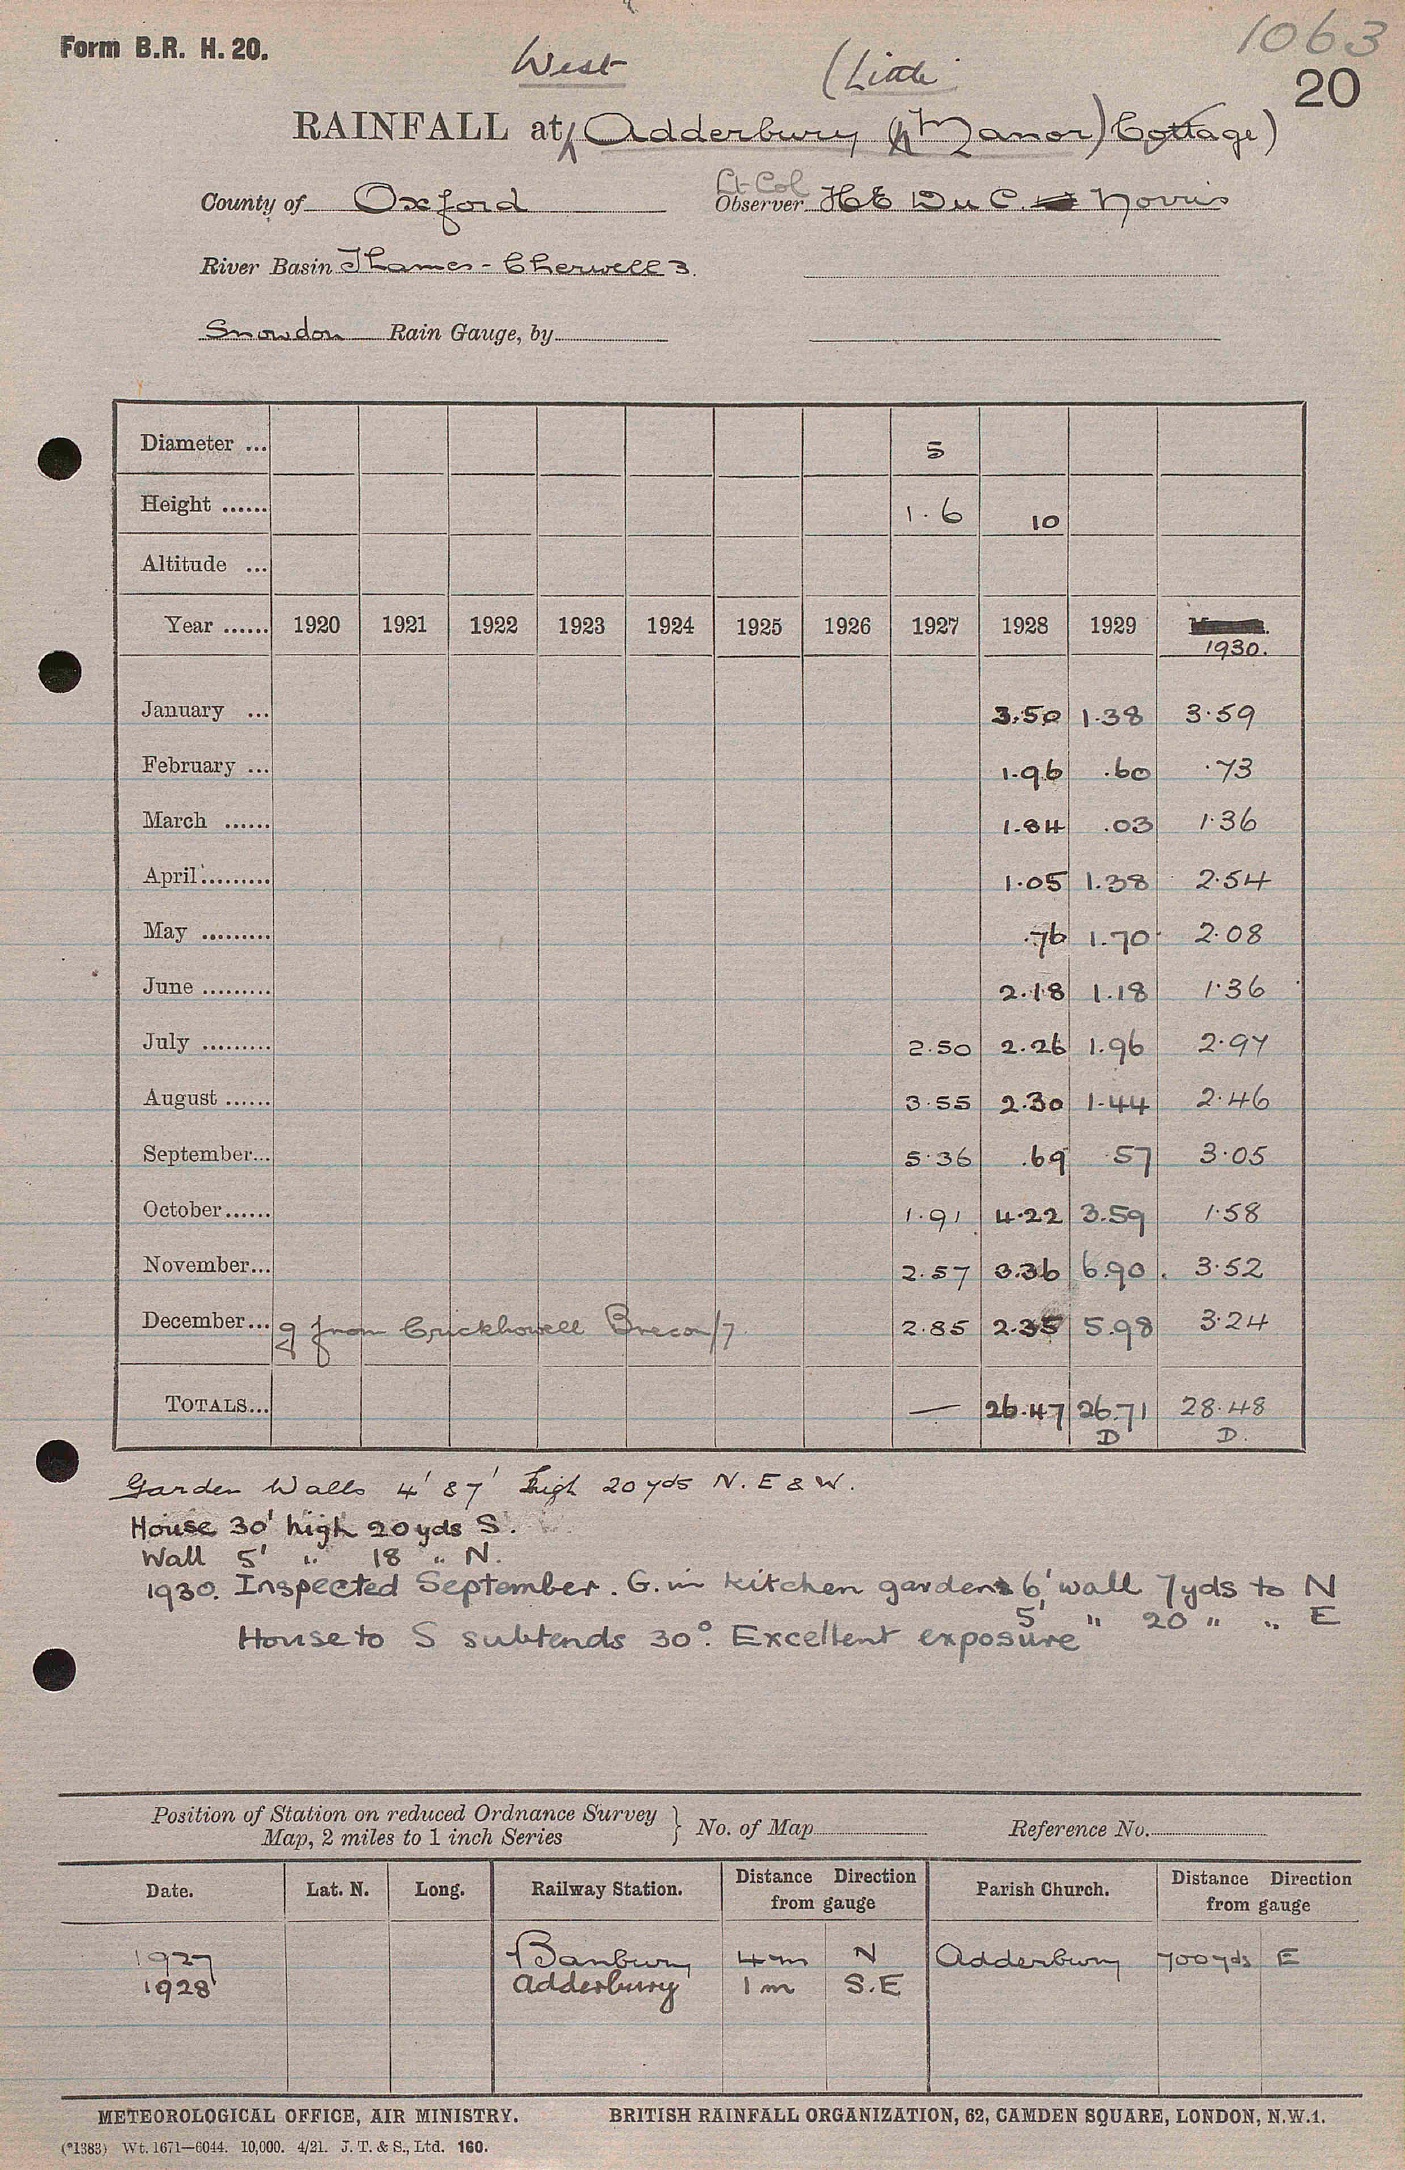 1063
Form B.R. H. 20.
20
West (Little
RAINFALL at Adderbury (Manor) Cottage)
County of Oxford Lt-Col Observer H E Du C. Norris
River Basin Thames - Cherwell 3.
Snowdon Rain Gauge, by
Diameter ... 5
Height ...... 1.6 10
Altitude ...
Year ...... 1920 1921 1922 1923 1924 1925 1926 1927 1928 1929 1930.
January ... 3.50 1.38 3.59
February ... 1.96 .60 .73
March ...... 1.84 .03 1.36
April ......... 1.05 1.38 2.54
May ......... .76 1.70 2.08
June ......... 2.18 1.18 1.36
July ......... 2.50 2.26 1.96 2.97
August ...... 3.55 2.30 1.44 2.46
September... 5.36 .69 .57 3.05
October...... 1.91 4.22 3.59 1.58
November... 2.57 3.36 6.90 3.52
December... g from Crickhowell Brecon/7 2.85 2.35 5.98 3.24
TOTALS... — 26.47 26.71 28.48
D D.
Garden Walls 4' & 7' high 20 yds N. E & W.
House 30' high 20 yds S.
Wall 5' " 18 " N.
1930. Inspected September. G. in kitchen garden 6' wall 7 yds to N
5' " 20 " " E
House to S subtends 30°. Excellent exposure
Position of Station on reduced Ordnance Survey Map, 2 miles to 1 inch Series } No. of Map Reference No.
Date. Lat. N. Long. Railway Station. Distance Direction from gauge Parish Church. Distance Direction from gauge
1927 Banbury 4 m N Adderbury 700 yds E
1928 Adderbury 1 m S.E
METEOROLOGICAL OFFICE, AIR MINISTRY. BRITISH RAINFALL ORGANIZATION, 62, CAMDEN SQUARE, LONDON, N.W.1.
(*1383) Wt. 1671—6044. 10,000. 4/21. J. T. & S., Ltd. 160.